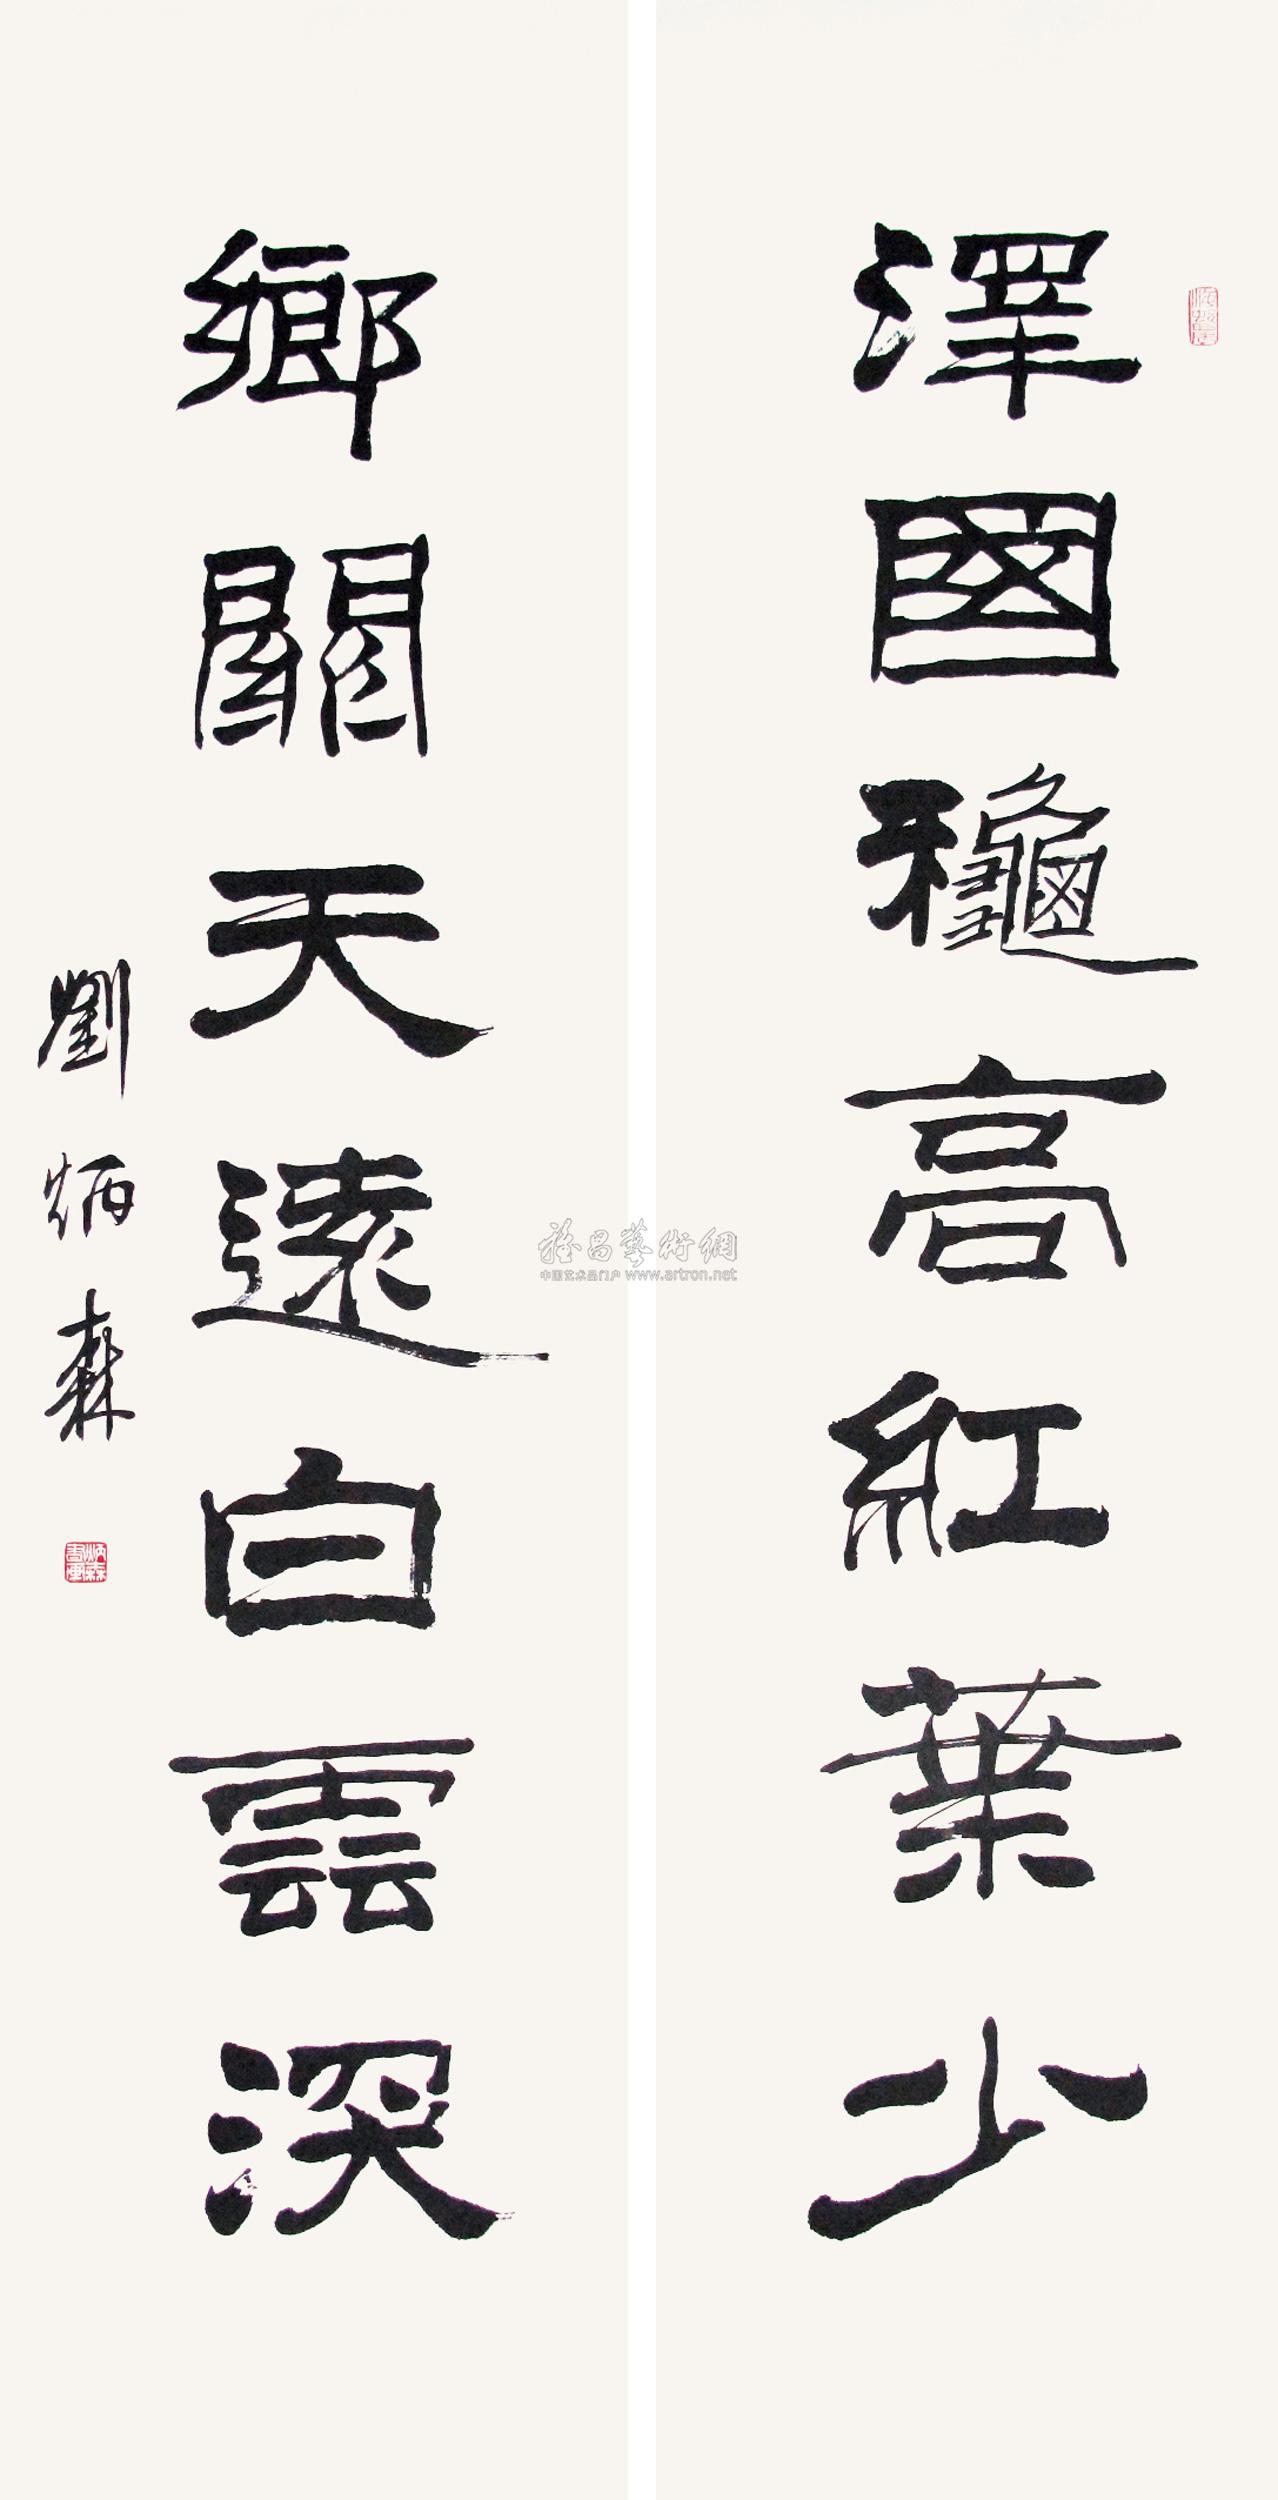 澤國龝高紅葉少
鄉關天遠白雲深
劉炳森
炳森書畫
雅昌藝術網
中国艺术品门户 www.artron.net